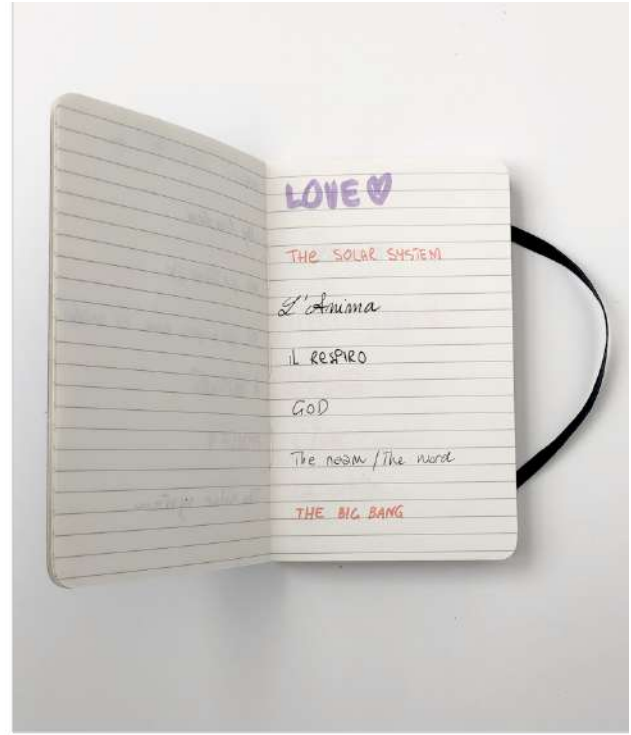 LOVE
THE SOLAR SYSTEM
L'Anima
IL RESPIRO
GOD
The naam / The word
THE BIG BANG